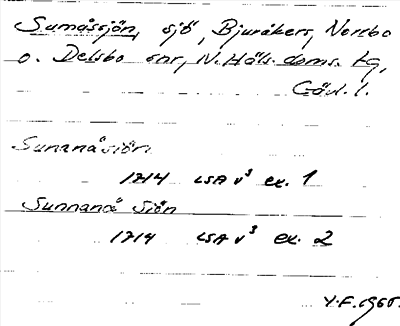 Sumåssjön, sjö, Bjuråkers, Norrbo
o. Delsbo snr, N. Häls. doms. tg,
Gävl. l.
Sunanåsiön
1714 LSA v³ ex. 1
Sunnanå Siön
1714 LSA v³ ex. 2
Y.F. 1965.